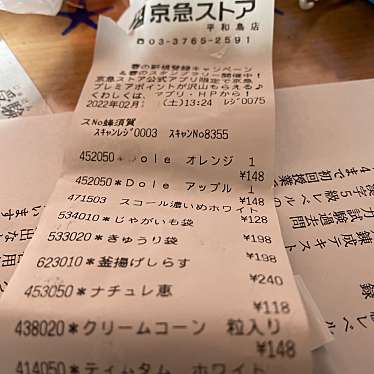 京急ストア
平和島店
☎03-3765-2591
春の新規登録キャンペーン
&春のスタンプラリー開催中！
京急ストア公式アプリ限定で京急
プレミアポイントが沢山もらえる♪
くわしくは、アプリ・HPから！
2022年02月 (土)13:24 レジ0075
スNo蜂須賀
スキャンレジ0003 スキャンNo8355
452050*Dole オレンジ 1
¥148
452050*Dole アップル 1
¥148
471503 スコール濃いめホワイト
¥128
534010*じゃがいも袋
¥198
533020*きゅうり袋
¥198
623010*釜揚げしらす
¥240
453050*ナチュレ恵
¥118
438020*クリームコーン 粒入り
¥148
414050*ティムタム ホワイト